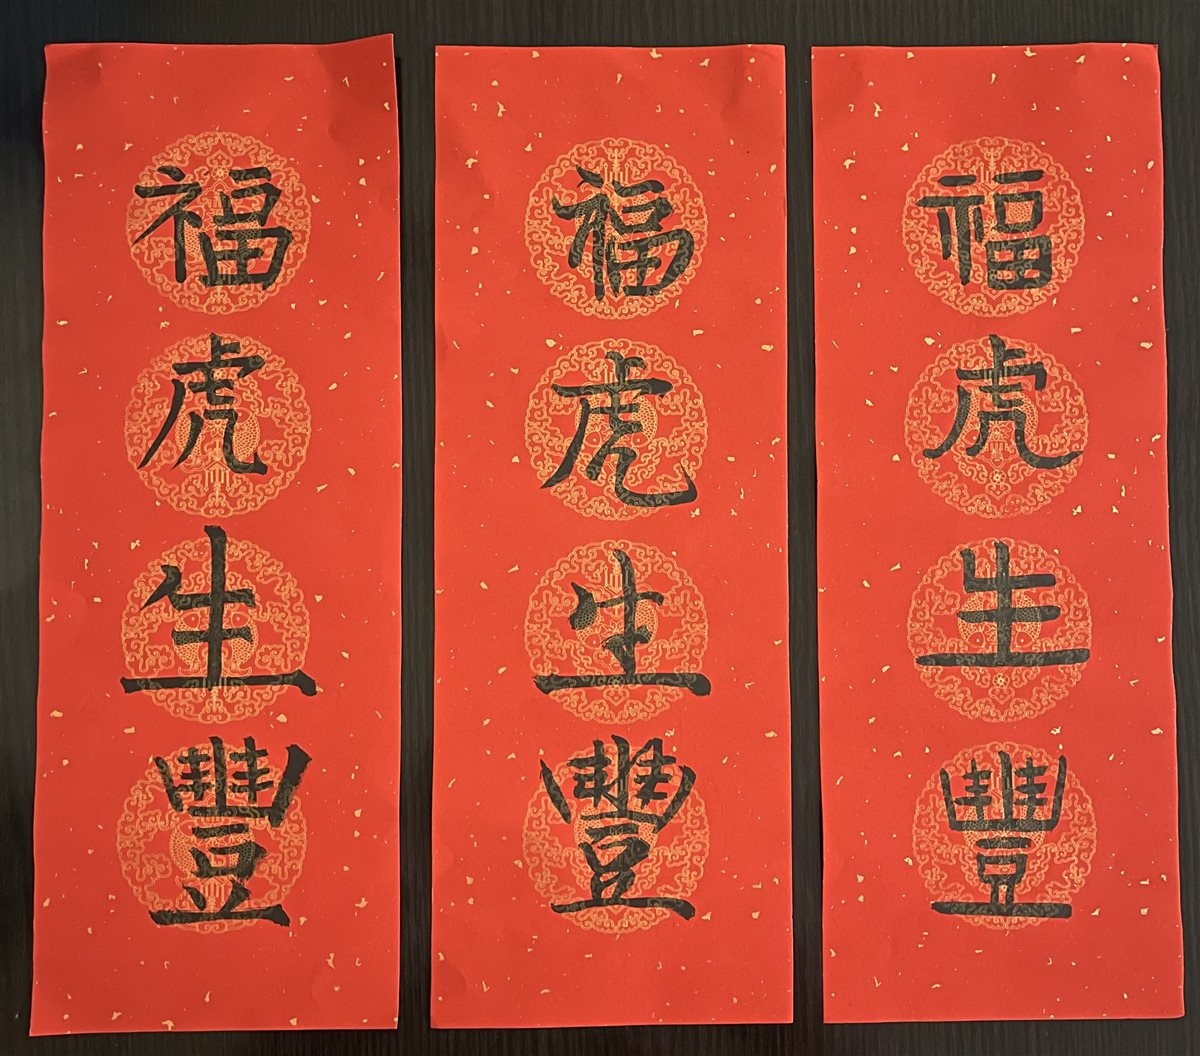 福虎生豐
福虎生豐
福虎生豐